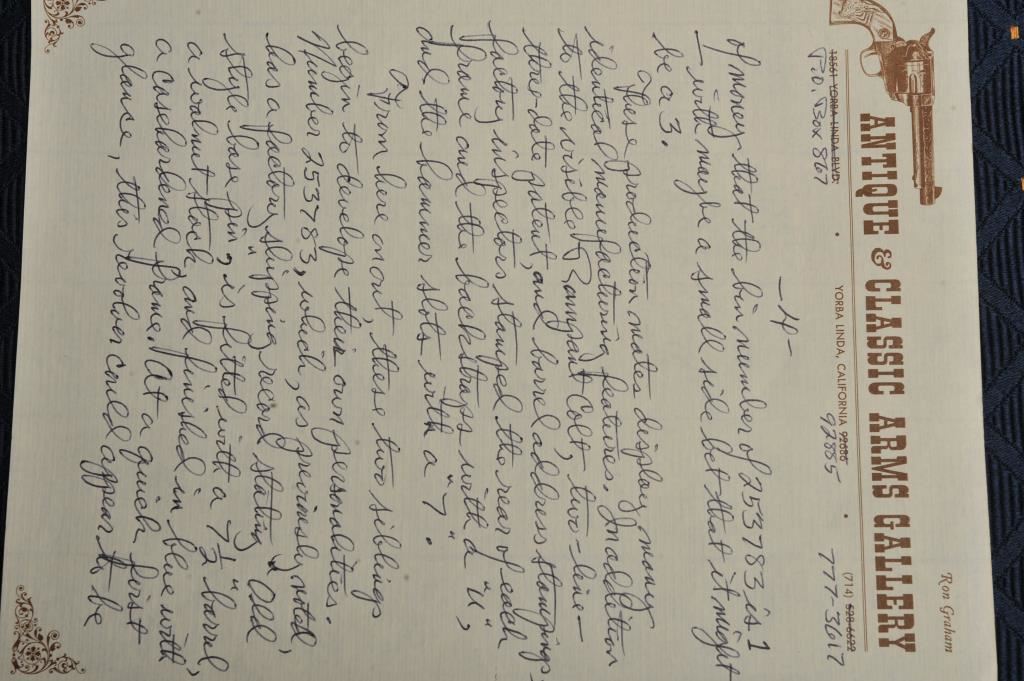 Ron Graham
ANTIQUE & CLASSIC ARMS GALLERY
(714) 528-6622
18561 YORBA LINDA BLVD. • YORBA LINDA, CALIFORNIA 92686 •
P.O. Box 867 92885 777-3617
-4-
of money that the bin number of 253783 is 1
— with maybe a small side bet that it might
be a 3.
These production mates display many
identical manufacturing features. In addition
to the visible Rampant Colt, two-line-
three-date patent, and barrel address stampings
factory inspectors stamped the rear of each
frame and the backstraps with a "u",
and the hammer slots with a "7".
From here on out, these two siblings
begin to develope their own personalities.
Number 253783, which, as previously noted,
has a factory shipping record stating "old
style base pin", is fitted with a 7½" barrel,
a walnut stock, and finished in blue with
a casehardened frame. At a quick first
glance, this revolver could appear to be